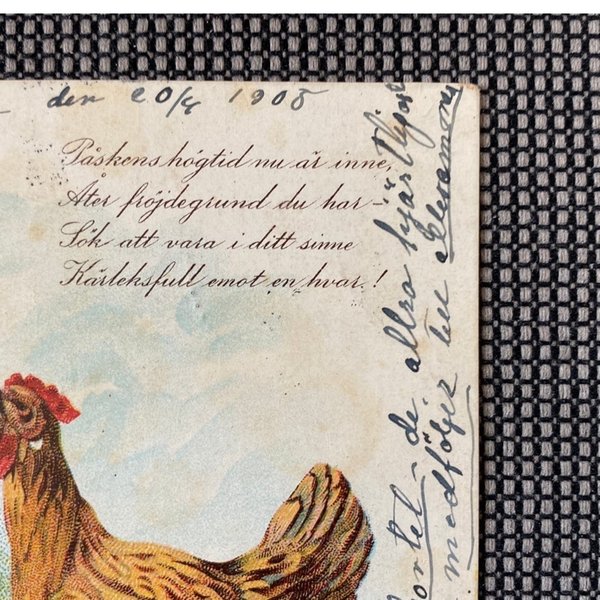 den 20/4 1905
Påskens högtid nu är inne,
Åter fröjdegrund du har –
Sök att vara i ditt sinne
Kärleksfull emot en hvar.!
de allra
medföljer till